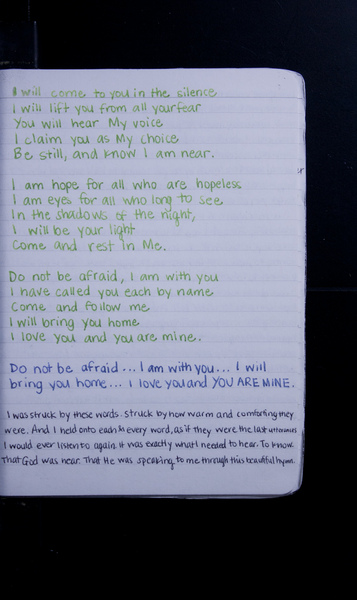 I will come to you in the silence
I will lift you from all your fear
You will hear My voice
I claim you as My choice
Be still, and know I am near.
I am hope for all who are hopeless
I am eyes for all who long to see
In the shadows of the night,
I will be your light
Come and rest in Me.
Do not be afraid, I am with you
I have called you each by name
Come and follow me
I will bring you home
I love you and you are mine.
Do not be afraid... I am with you... I will
bring you home... I love you and YOU ARE MINE.
I was struck by these words. Struck by how warm and comforting they
were. And I held onto each every word, as if they were the last utterances
I would ever listen to again. It was exactly what I needed to hear. To know
That God was near. That He was speaking to me through this beautiful hymn.